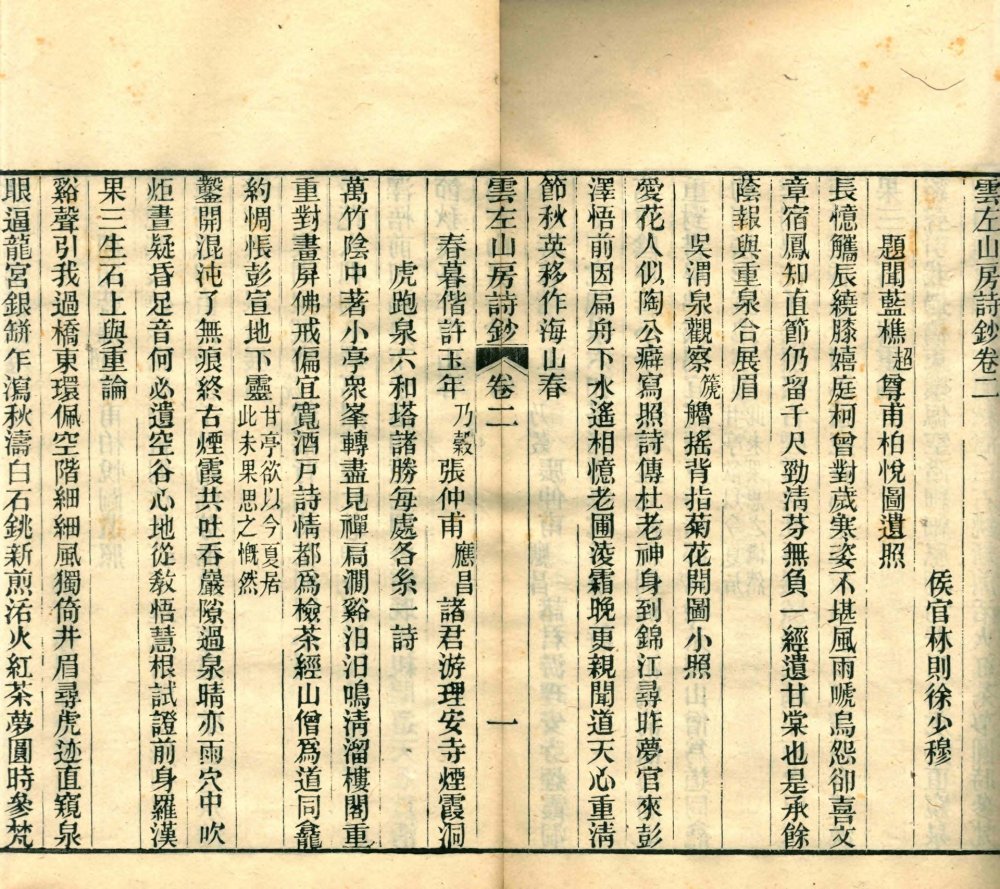 雲左山房詩鈔卷二
侯官林則徐少穆
題聞藍樵超尊甫柏悅圖遺照
長憶觿辰繞膝嬉庭柯曾對歲寒姿不堪風雨嗁烏怨卻喜文
章宿鳳知直節仍留千尺勁清芬無負一經遺甘棠也是承餘
蔭報與重泉合展眉
吳渭泉觀察箎艣搖背指菊花開圖小照
愛花人似陶公癖寫照詩傳杜老神身到錦江尋昨夢官來彭
澤悟前因扁舟下水遙相憶老圃淩霜晚更親聞道天心重清
節秋英移作海山春
雲左山房詩鈔 卷二 一
春暮偕許玉年乃穀張仲甫應昌諸君游理安寺煙霞洞
虎跑泉六和塔諸勝每處各系一詩
萬竹陰中著小亭眾峯轉盡見禪扃澗谿汨汨鳴清溜樓閣重
重對畫屏佛戒偏宜寬酒戸詩情都爲檢茶經山僧爲道同龕
約惆悵彭宣地下靈甘亭欲以今夏居
此未果思之慨然
鑿開混沌了無痕終古煙霞共吐吞巖隙過泉晴亦雨穴中吹
炬晝疑昏足音何必遺空谷心地從敎悟慧根試證前身羅漢
果三生石上與重論
谿聲引我過橋東環佩空階細細風獨倚井眉尋虎迹直窺泉
眼逼龍宮銀缾乍瀉秋濤白石銚新煎活火紅茶夢圓時參梵